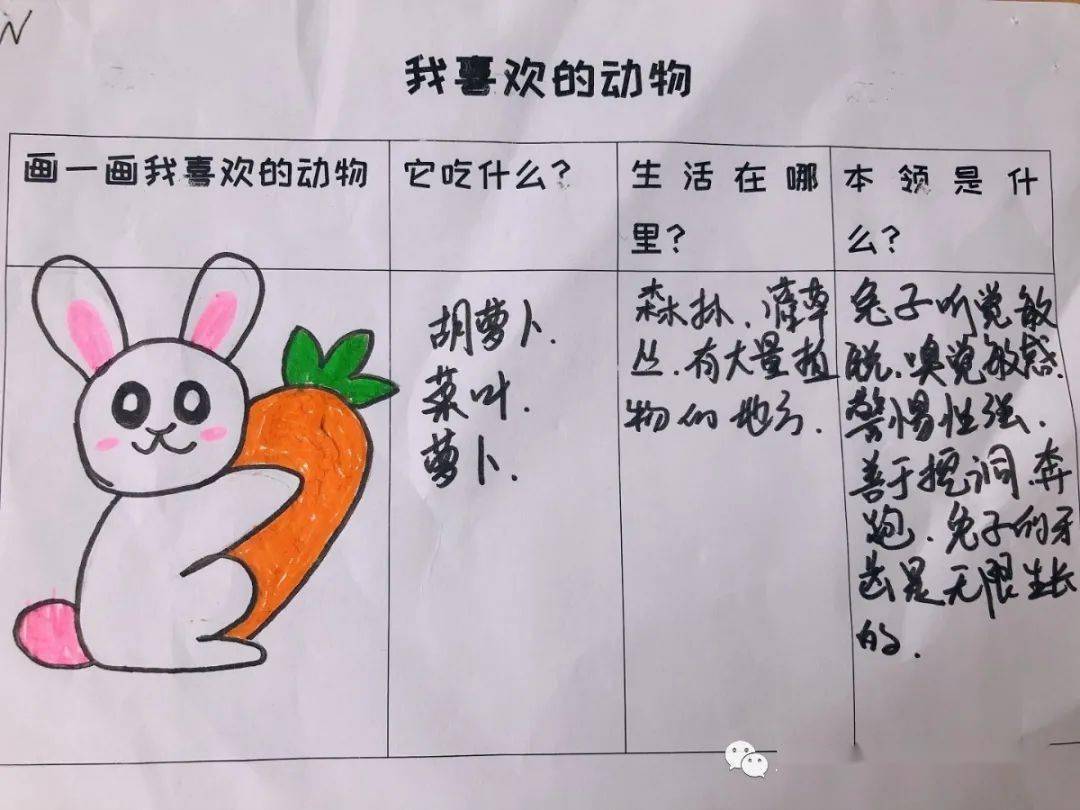 N
我喜欢的动物
画一画我喜欢的动物
它吃什么?
生活在哪
里?
本领是什
么?
胡萝卜.
菜叶.
萝卜.
森林、灌草
丛.有大量植
物的地方.
兔子听觉敏
锐.嗅觉敏感.
警惕性强.
善于挖洞.奔
跑.兔子的牙
齿是无限生长
的.